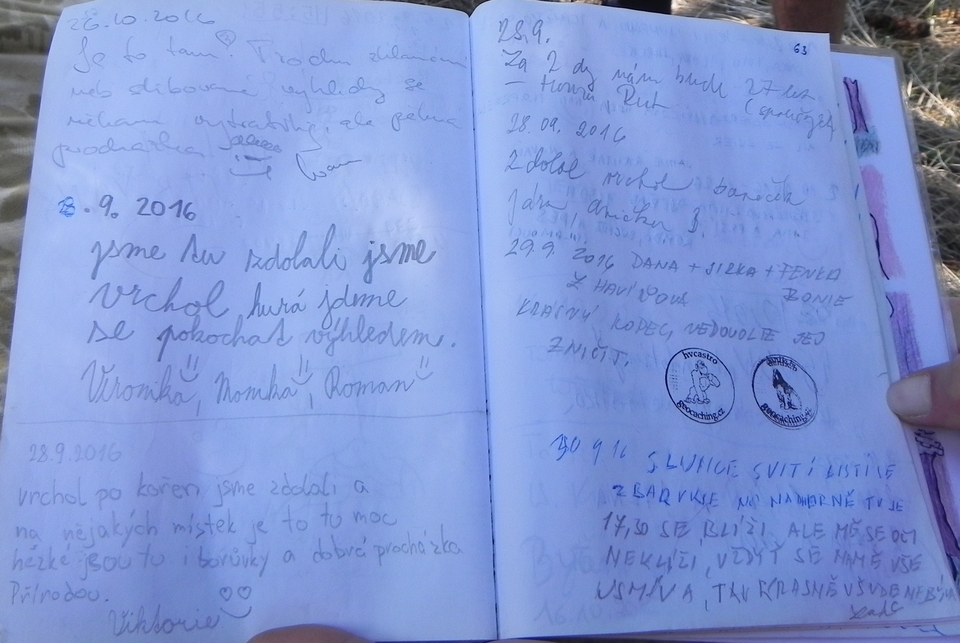 26.10.2016
Je to tam! Trochu zklamání
neb slibované výhlídy se
nekonaj ale pěkná
procházka
Ivan
8.9.2016
jsme tu zdolali jsme
vrchol, hurá jdeme
se pokochat výhledem.
Veronika, Monika, Roman
28.9.2016
vrchol po kořen jsme zdolali a
na nějakých místek je to tu moc
hézké jsou tu i borůvky a dobrá procházka
Přírodou.
Viktorie
63
28.9.
Za 2 dny nám bude 27 let
28.09.2016
Zdolal vrchol
Jára
29.9.2016 DANA + JIRKA + FENKA
Z HAVÍŘOVA BONIE
KRÁSNÝ KOPEC, NEDOVOLTE JEJ
ZNIČIT.
hvcastro
geocaching.cz
geocaching.cz
30 9 16 SLUNCE SVÍTÍ LISTÍ SE
ZBARVUJE NO NÁDHERNĚ TU JE
17,30 SE BLÍŽÍ ALE MĚ SE DOLŮ
NEKLÍŽÍ, VŽDYŤ SE NA MĚ VŠE
USMÍVA, TAK KRÁSNĚ VŠUDE NEBÝVÁ